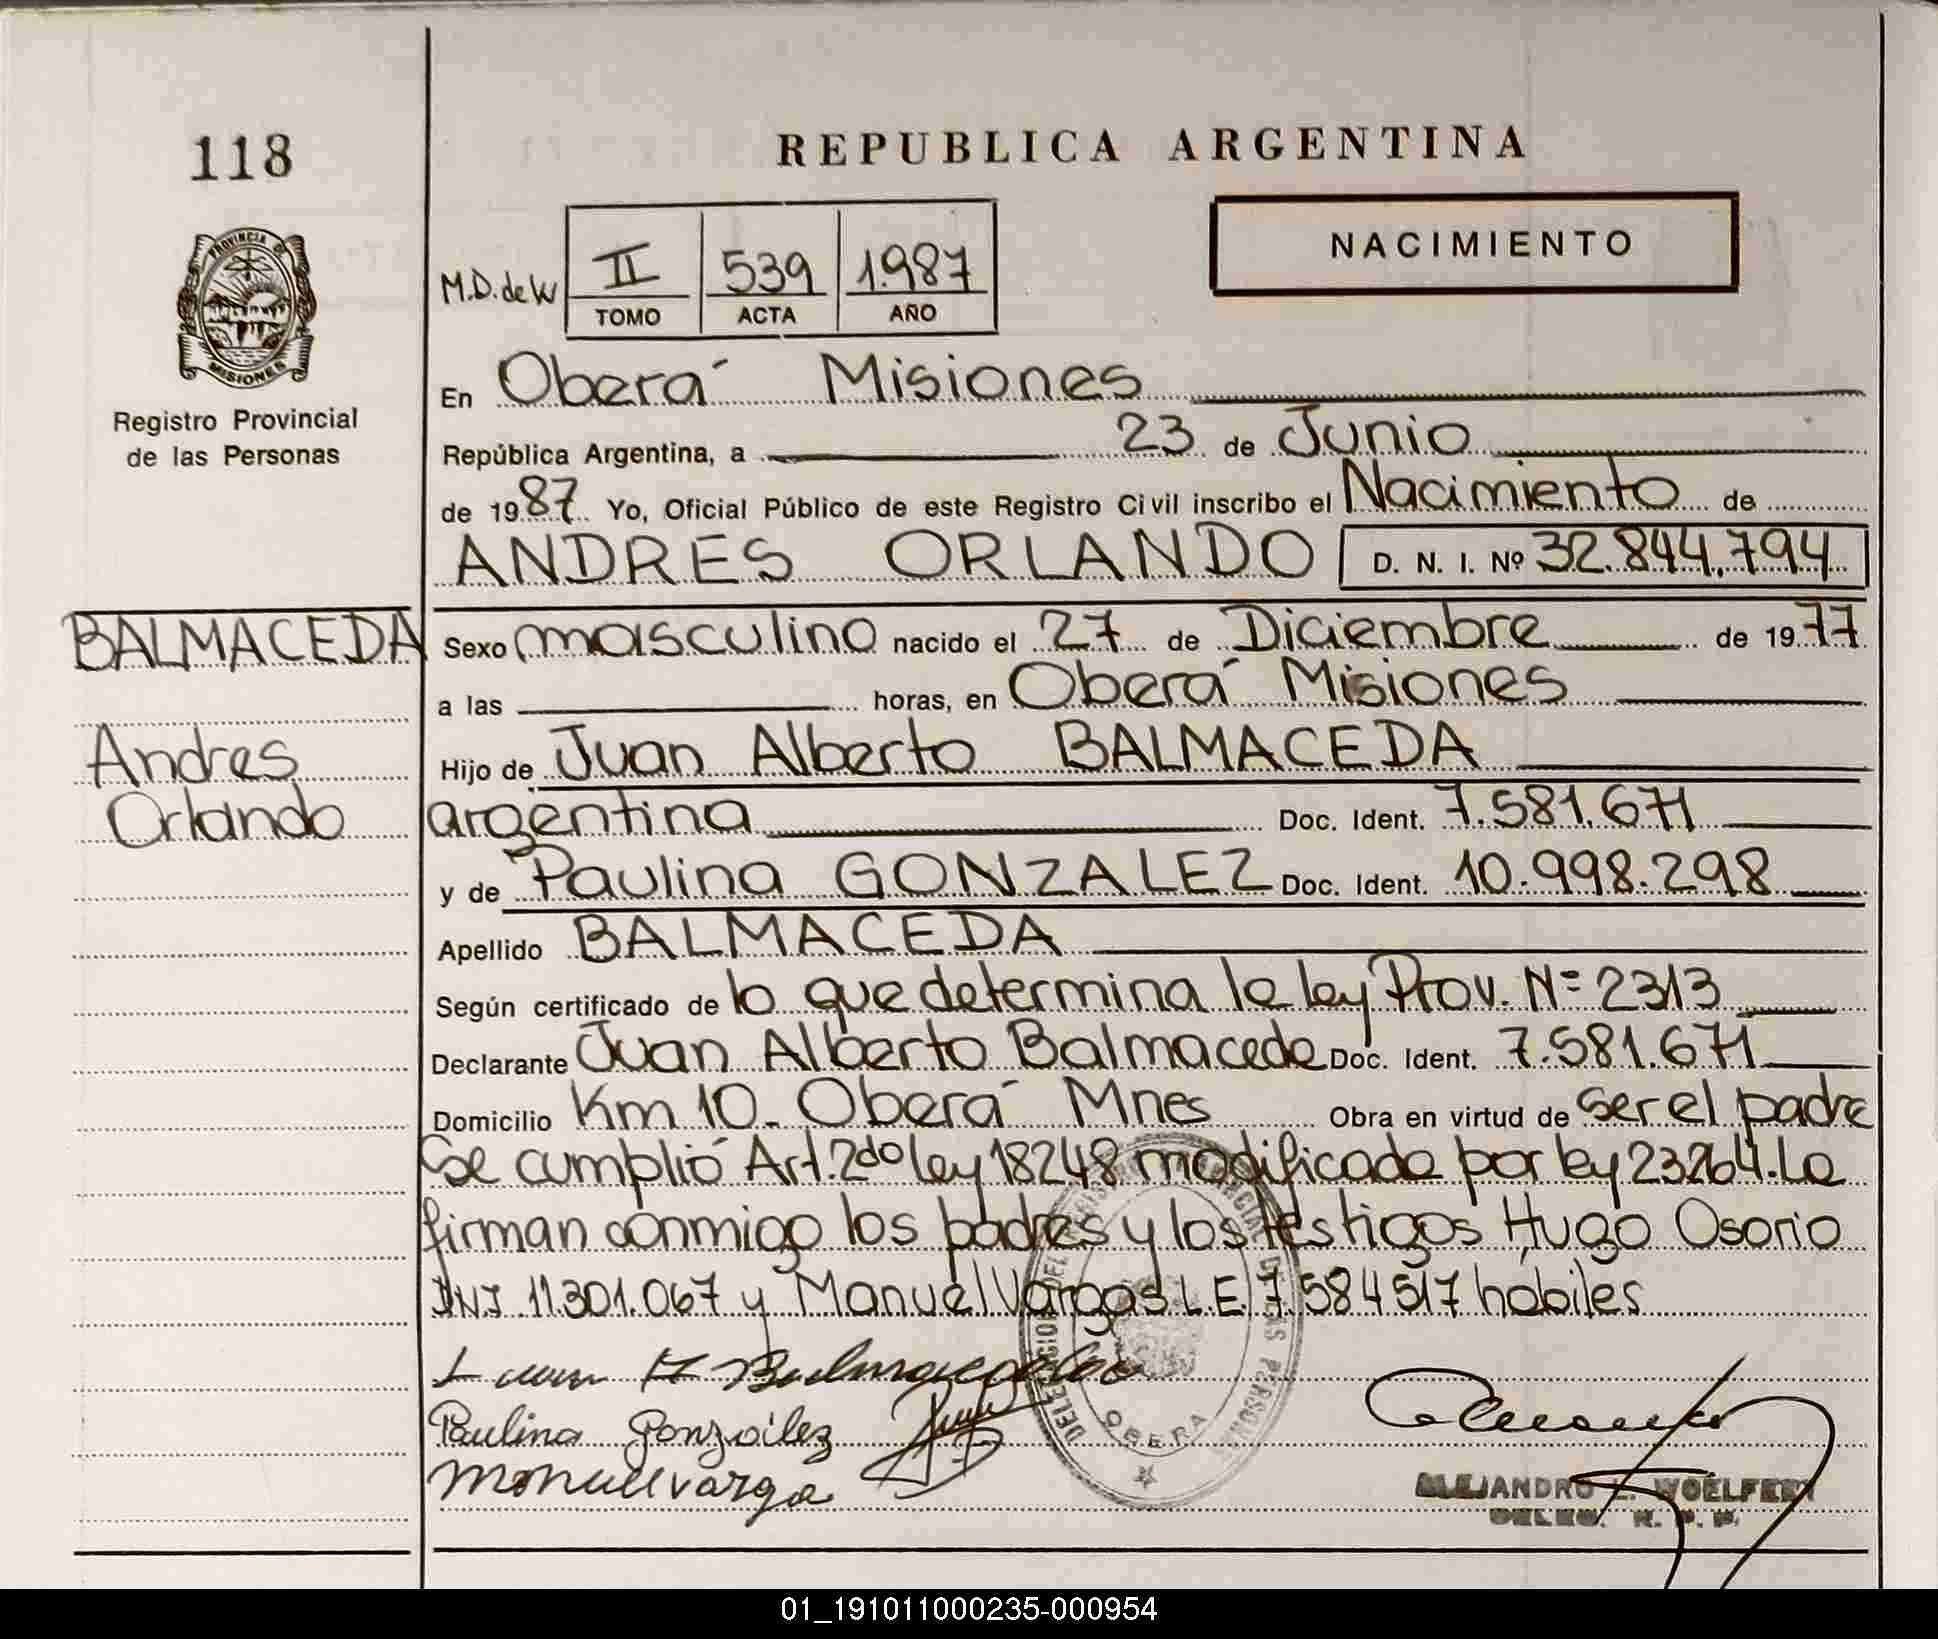 118
REPUBLICA ARGENTINA
NACIMIENTO
PROVINCIA DE
MISIONES
Registro Provincial
de las Personas
M.D. de W
II 539 1.987
TOMO ACTA AÑO
En Oberá Misiones
República Argentina, a 23 de Junio
de 1987 Yo, Oficial Público de este Registro Civil inscribo el Nacimiento de
ANDRES ORLANDO D. N. I. Nº 32.844.794
BALMACEDA
Andres
Orlando
Sexo masculino nacido el 27 de Diciembre de 1977
a las horas, en Oberá Misiones
Hijo de Juan Alberto BALMACEDA
argentina Doc. Ident. 7.581.671
y de Paulina GONZALEZ Doc. Ident. 10.998.298
Apellido BALMACEDA
Según certificado de lo que determina la ley Prov. Nº 2313
Declarante Juan Alberto Balmaceda Doc. Ident. 7.581.671
Domicilio Km 10. Oberá Mnes Obra en virtud de ser el padre
Se cumplió Art. 2do ley 18248 modificada por ley 23264. La
firman conmigo los padres y los testigos Hugo Osorio
DNI 11.301.067 y Manuel Vargas L.E. 7.584517 hábiles
Juan A Balmaceda
Paulina González
Manuel varga
OBERA
ALEJANDRO L. WOELFERT
DELEG. R. P. P.
01_191011000235-000954